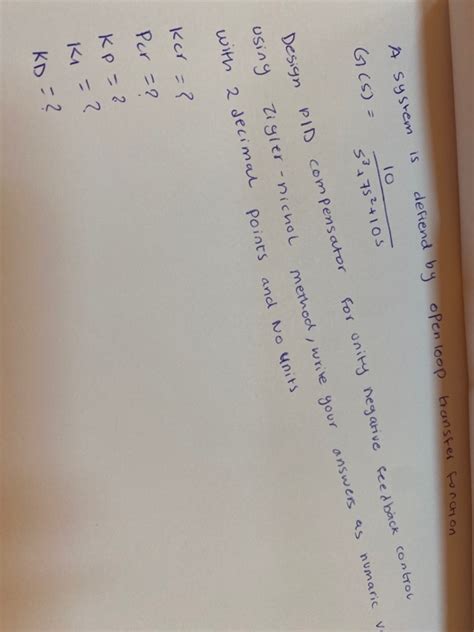 A system is defiend by openloop transfer function
G(s) = 10
s³+7s²+10s
Design PID compensator for unity negative feedback control
using zigler-nichol method, write your answers as numaric v
with 2 decimal points and No units
Kcr = ?
Pcr = ?
Kp = ?
KI = ?
KD = ?